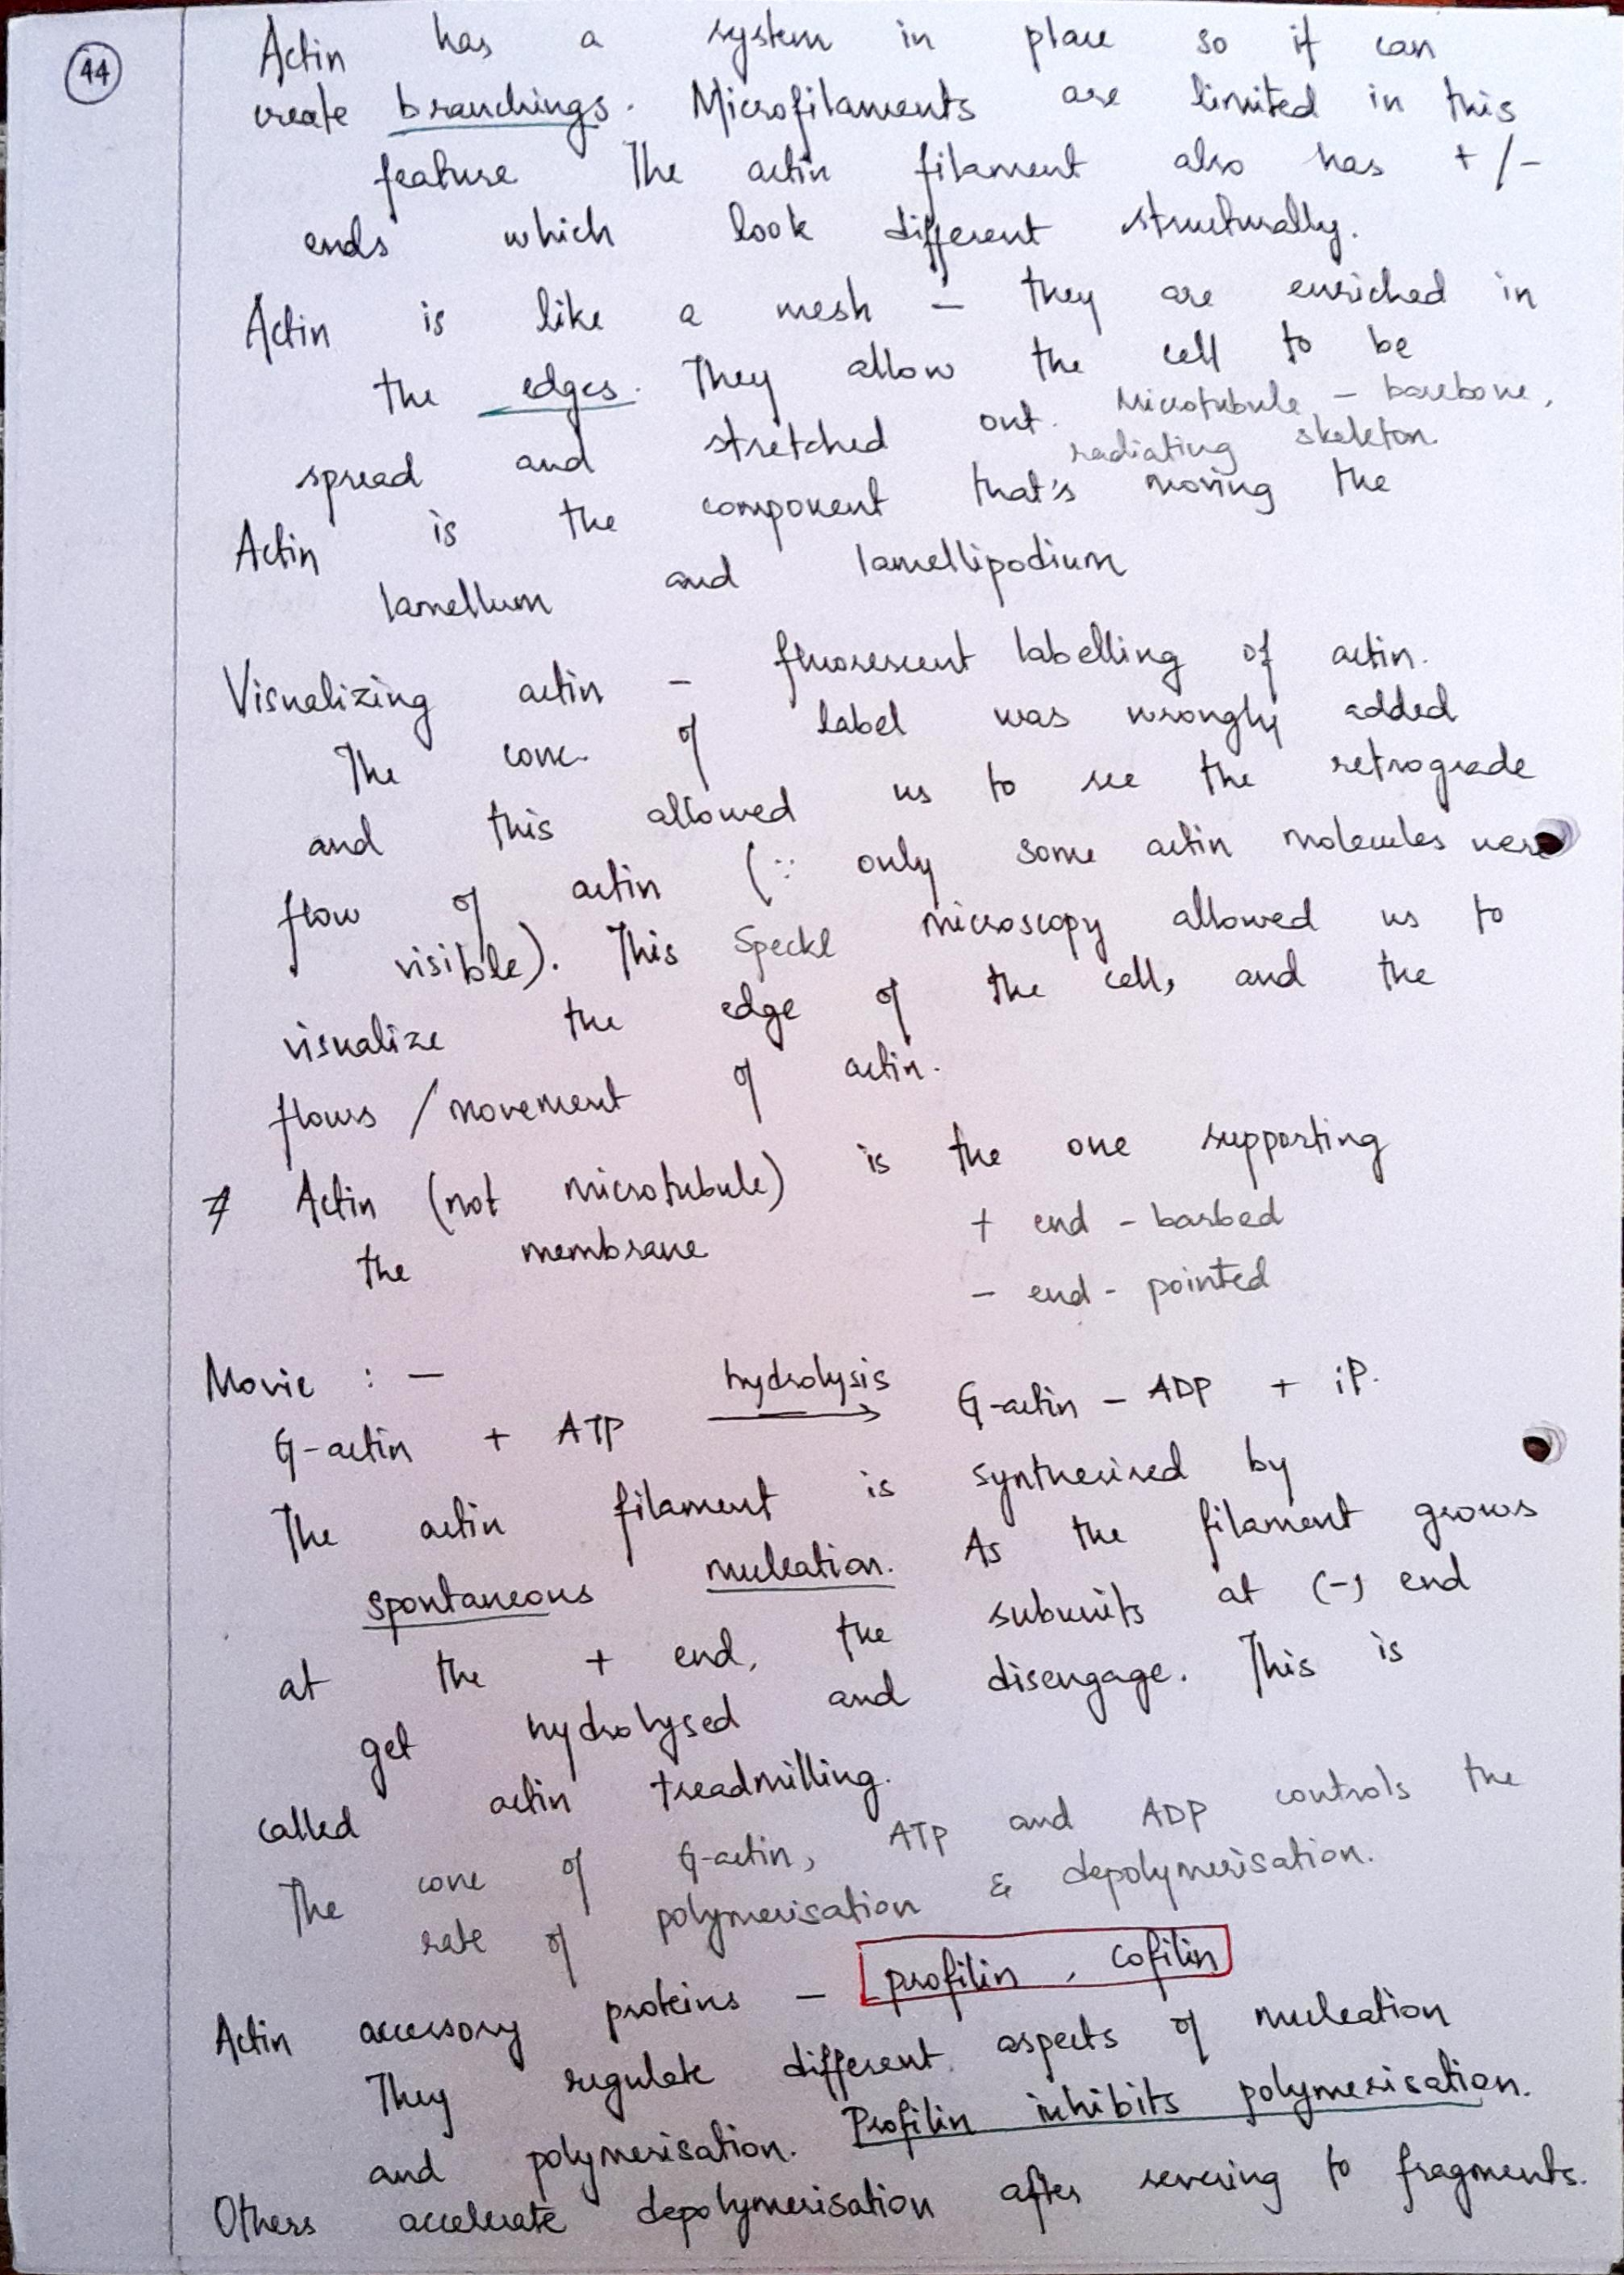 44
Actin has a system in place so it can
create branchings. Microfilaments are limited in this
feature The actin filament also has +/-
ends which look different structurally.
Actin is like a mesh - they are enriched in
the edges. They allow the cell to be
spread and stretched out. Microtubule - barebone,
radiating skeleton.
Actin is the component that's moving the
lamellum and lamellipodium
Visualizing actin - fluorescent labelling of actin.
The conc. of label was wrongly added
and this allowed us to see the retrograde
flow of actin (∵ only some actin molecules were
visible). This Speckl microscopy allowed us to
visualize the edge of the cell, and the
flows / movement of actin.
* Actin (not microtubule) is the one supporting
the membrane
+ end - barbed
- end - pointed
Movie : -
G-actin + ATP hydrolysis → G-actin - ADP + iP.
The actin filament is synthesised by
spontaneous nucleation. As the filament grows
at the + end, the subunits at (-) end
get hydrolysed and disengage. This is
called actin treadmilling.
The conc of G-actin, ATP and ADP controls the
rate of polymerisation & depolymerisation.
Actin accessory proteins - profilin, cofilin
They regulate different aspects of nucleation
and polymerisation. Profilin inhibits polymerisation.
Others accelerate depolymerisation after severing to fragments.